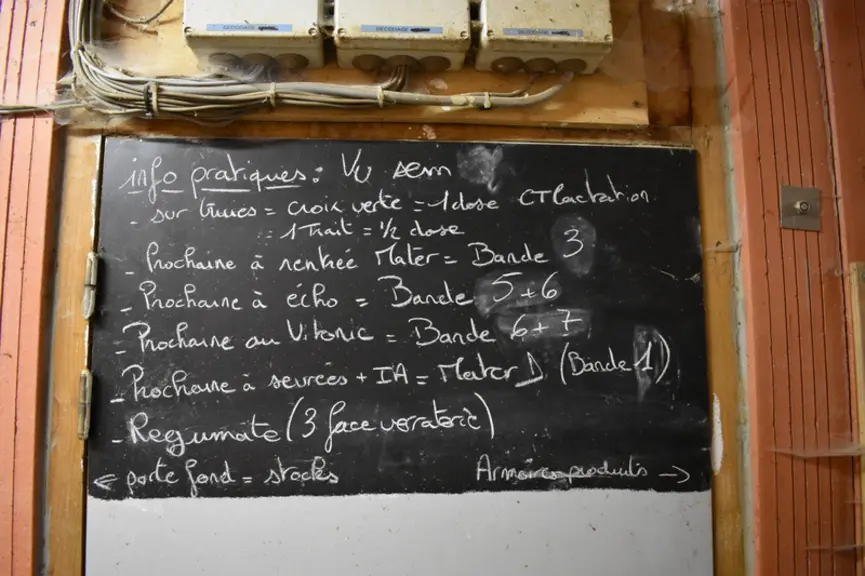 DECODAGE
DECODAGE
DECODAGE
info pratiques: Vu sem
- sur truies = croix verte = 1 dose CTLactation
= 1 Trait = 1/2 dose
- Prochaine à rentrée Mater = Bande 3
- Prochaine à écho = Bande 5+6
- Prochaine au Vitonic = Bande 6+7
- Prochaine à seurées + IA = Mater D (Bande 1)
- Regumate (3 face verraterie)
← porte fond = stocks
Armoires produits →